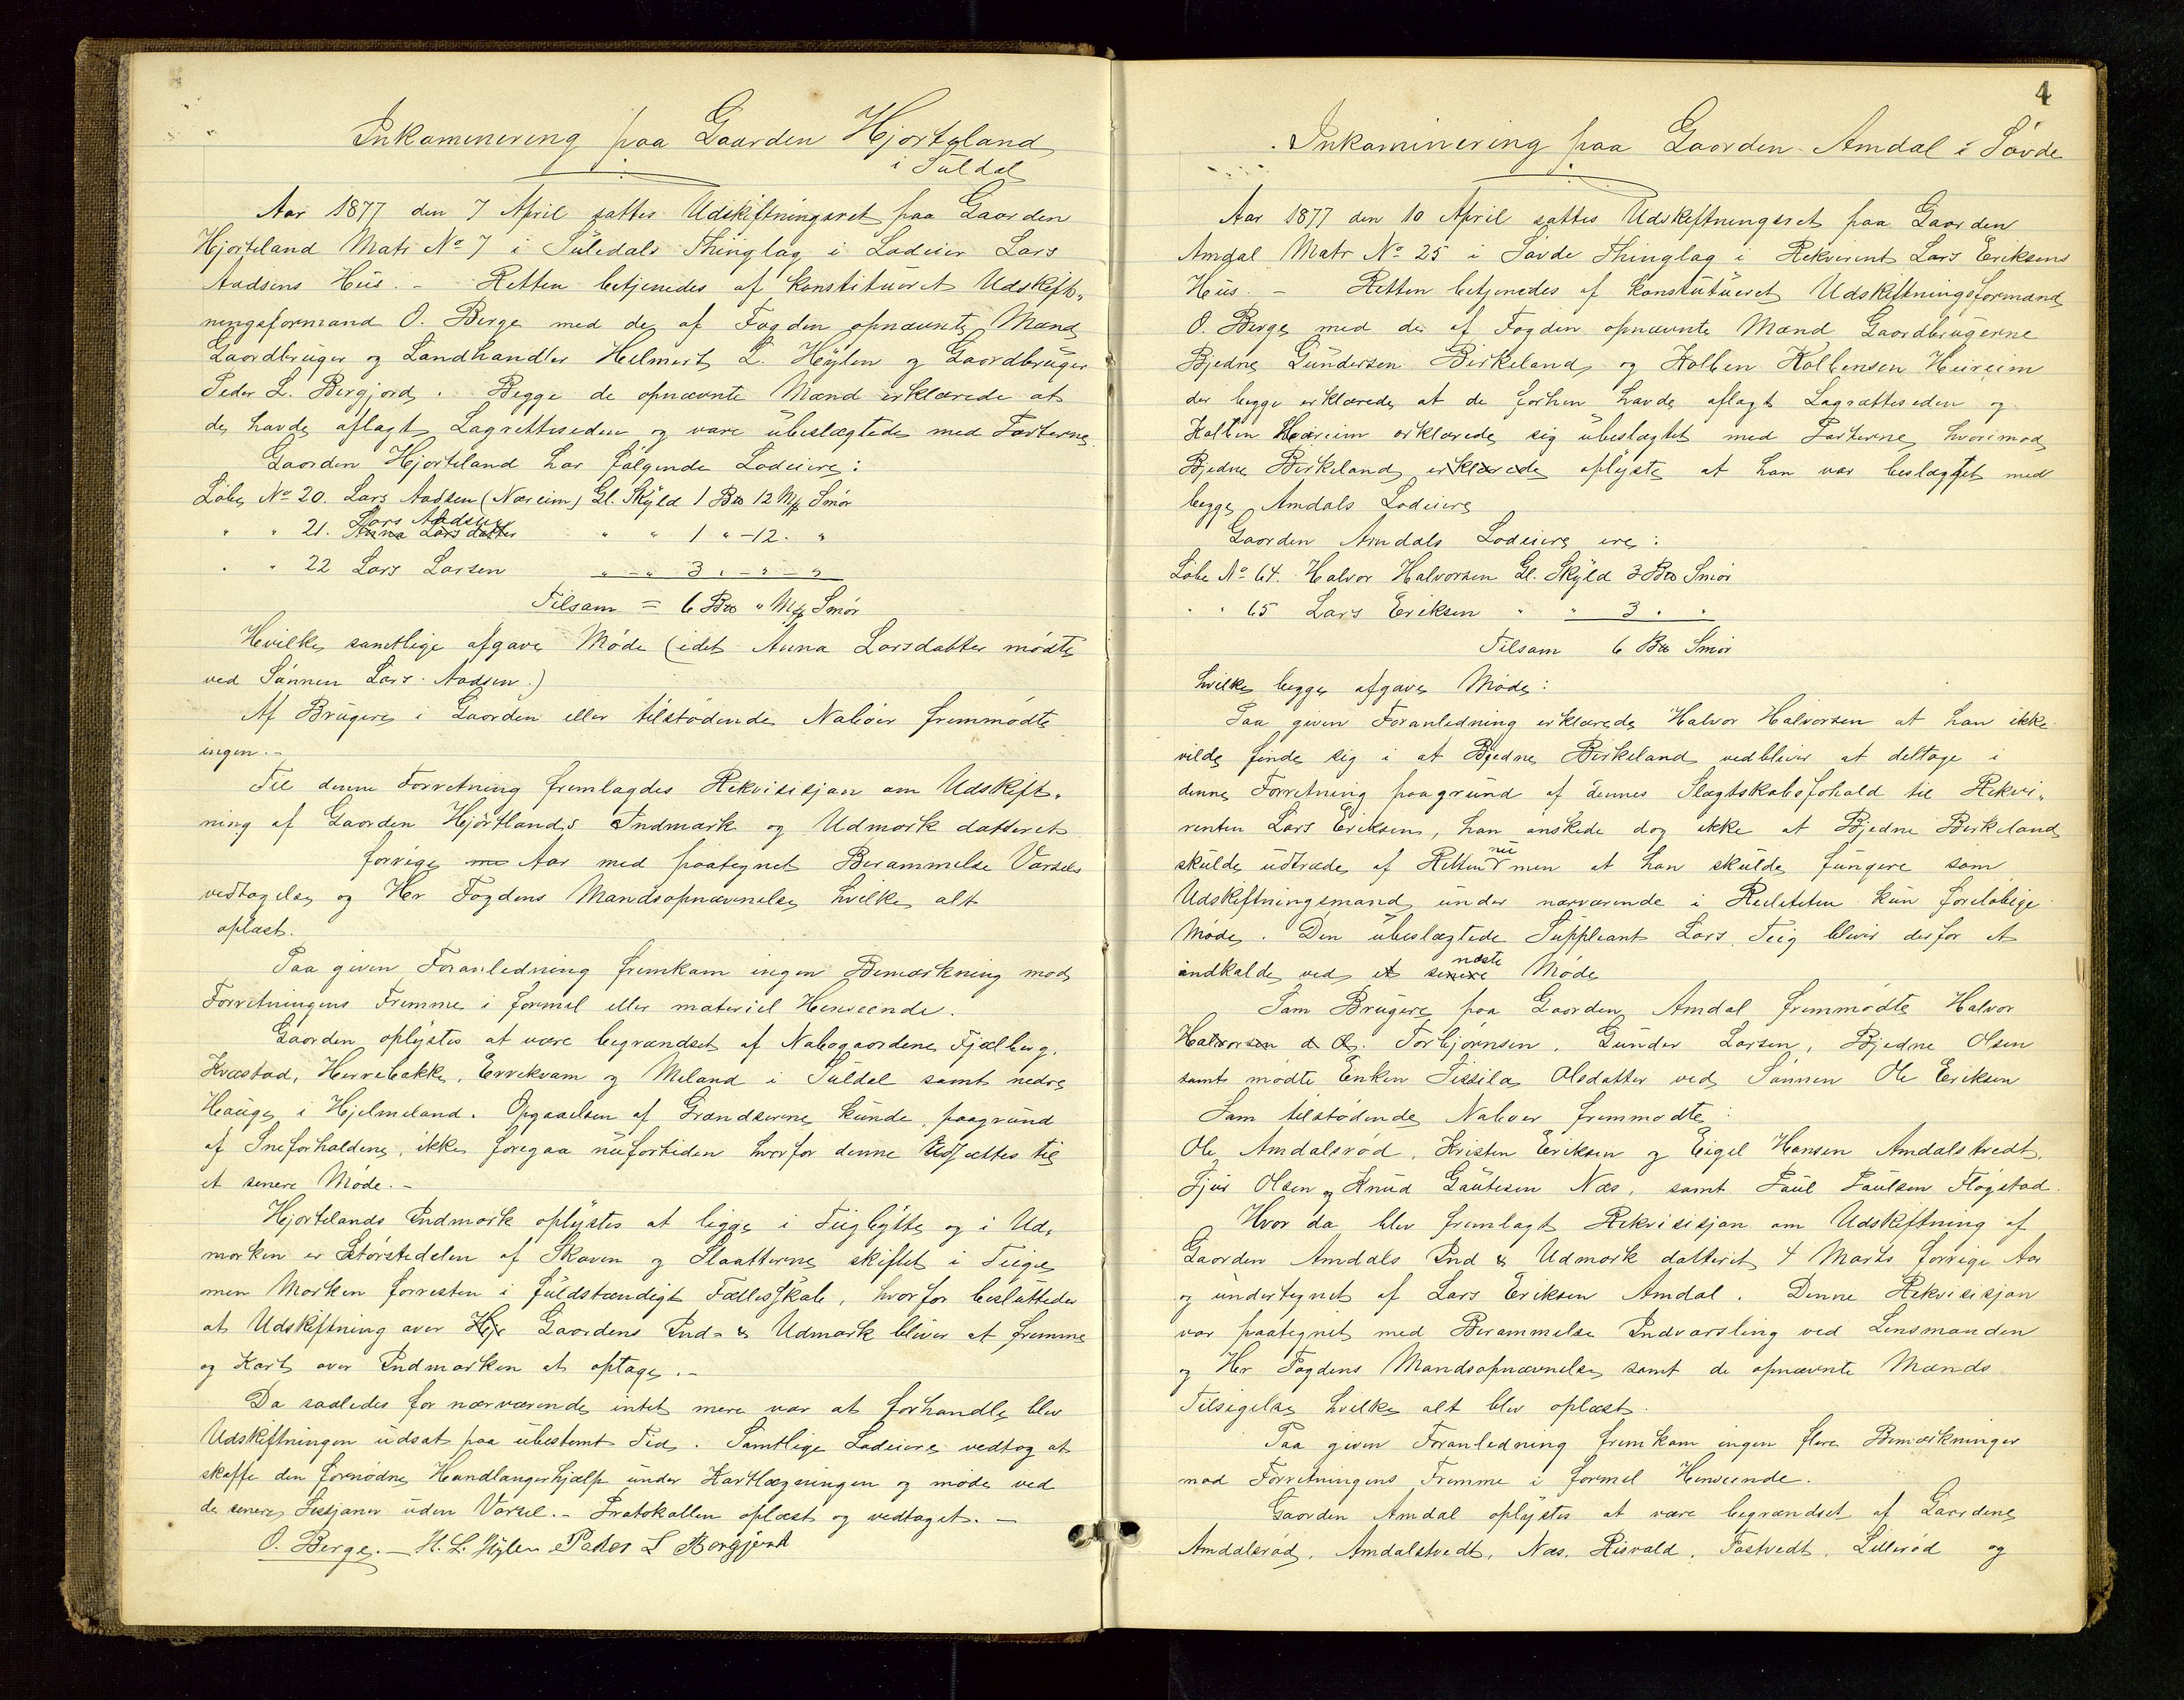 Inkaminering paa Gaarden Hjorteland
i Suldal
Aar 1877 den 7 April sattes Udskiftningsret paa Gaarden
Hjorteland Matr No 7 i Suledals Thinglag i Lodeier Lars
Aadsens Hus. - Retten betjenedes af konstitueret Udskift-
ningsformand O. Berge med de af Fogden opnævnte Mænd
Gaardbruger og Landhandler Helmert L. Høylen og Gaardbruger
Peder L. Bergjord. Begge de opnævnte Mænd erklærede at
de havde aflagt Lagretteseden og vare ubeslægtede med Parterne.
Gaarden Hjorteland har følgende Lodeiere:
Løbe No 20. Lars Aadsen (Næreim) Gl. Skyld 1 Bœ 12 Mk Smør
" " 21. Lars Aadsen Anna Larsdatter " " 1 " -12. "
" " 22 Lars Larsen " - " 3 " - " - "
Tilsam = 6 Bœ " Mk Smør
Hvilke samtlige afgave Møde (idet Anna Larsdatter mødte
ved Sønnen Lars Aadsen.)
Af Brugere i Gaarden eller tilstødende Naboer fremmødte
ingen. -
Til denne Forretning fremlagdes Rekvisisjan om Udskift-
ning af Gaarden Hjørtlands Indmark og Udmark datteret
forrige Aar med paategnet Berammelse Varsels
vedtagelse og Hr Fogdens Mandsopnævnelse hvilke alt
oplæst.
Paa given Foranledning fremkam ingen Bemærkning mod
Forretningens Fremme i formel eller materiel Henseende.
Gaarden oplystes at være begrændset af Nabogaardene Fjælberg,
Kvæstad, Herrebakke, Errekvam og Meland i Suldal samt nedre
Hauge i Hjelmeland. Opgaaelsen af Grændserne kunde, paagrund
af Sneforholdene, ikke foregaa nufortiden hvorfor denne udsættes til
et senere Møde. -
Hjortelands Indmark oplystes at ligge i Teigbytte og i Ud-
marken er Størstedelen af Skaven og Slaatterne skiftet i Teige
men Marken forresten i fuldstændigt Fællesskab, hvorfor besluttedes
at Udskiftning over Gaardens Ind- & Udmark bliver at fremme
og Kart over Indmarken at optage. -
Da saaledes for nærværende intet mere var at forhandle blev
Udskiftningen udsat paa ubestemt Tid. Samtlige Lodeiere vedtog at
skaffe den fornødne Handlangerhjælp under Kartlægningen og møde ved
de senere Sessjaner uden Varsel. - Pratokallen oplæst og vedtaget. -
O. Berge. - H. L. Høylen Peder L Bergjord
4
Inkaminering paa Gaarden Amdal i Søvde
Aar 1877 den 10 April sattes Udskiftningsret paa Gaarden
Amdal Matr No 25 i Søvde Thinglag i Rekvirent Lars Eriksens
Hus. - Retten betjenedes af konstitueret Udskiftningsformand
O. Berge med de af Fogden opnævnte Mænd Gaardbrugerne
Bjedne Gundersen Birkeland og Kolben Kolbensen Heireim
der begge erklærede at de forhen havde aflagt Lagrætteseden og
Kolben Heireim erklærede sig ubeslægtet med Parterne, hvorimod
Bjedne Birkeland erklærede oplyste at han var beslægtet med
begge Amdals Lodeiere
Gaarden Amdals Lodeiere ere:
Løbe No 64. Halvor Halvorsen Gl. Skyld 3 Bœ Smør
" " 65 Lars Eriksen " " 3 " "
Tilsam 6 Bœ Smør
hvilke begge afgave Møde:
Paa given Foranledning erklærede Halvor Halvorsen at han ikke
vilde finde sig i at Bjedne Birkeland vedbliver at deltage i
denne Forretning paagrund af dennes Slægtskabsfohold til Rekvi-
renten Lars Eriksen, han ønskede dog ikke at Bjedne Birkeland
skulde udtræde af Retten nu men at han skulde fungere som
Udskiftningsmand under nærværende i Realiteten kun foreløbige
Møde. Den ubeslægtede Suppleant Lars Teig bliver derfor at
indkalde ved et senere næste Møde
Som Brugere paa Gaarden Amdal fremmødte Halvor
Halvorsen d. Æ. Torbjørnsen, Gunder Larsen, Bjedne Olsen
samt mødte Enken Sissila Olsdatter ved Sønnen Ole Eriksen
Som tilstødende Naboer fremmødte:
Ole Amdalsrød, Kristen Eriksen og Eigel Hansen Amdalstvedt,
Sjur Olsen og Knud Gautesen Næs, samt Paul Paulsen Fløgstad.
Hvor da blev fremlagt Rekvisisjan om Udskiftning af
Gaarden Amdals Ind & Udmark datteret 4 Marts forrige Aar
og undertegnet af Lars Eriksen Amdal. Denne Rekvisisjan
var paategnet med Berammelse Indvarsling ved Lensmanden
og Hr Fogdens Mandsopnævnelse samt de opnævnte Mænds
Tilsigelse hvilke alt blev oplæst.
Paa given Foranledning fremkam ingen flere Bemærkninger
mod Forretningens Fremme i formel Henseende.
Gaarden Amdal oplystes at være begrændset af Gaardene
Amdalsrød, Amdalstvedt, Næs, Risvald, Fastvedt, Lillerød og